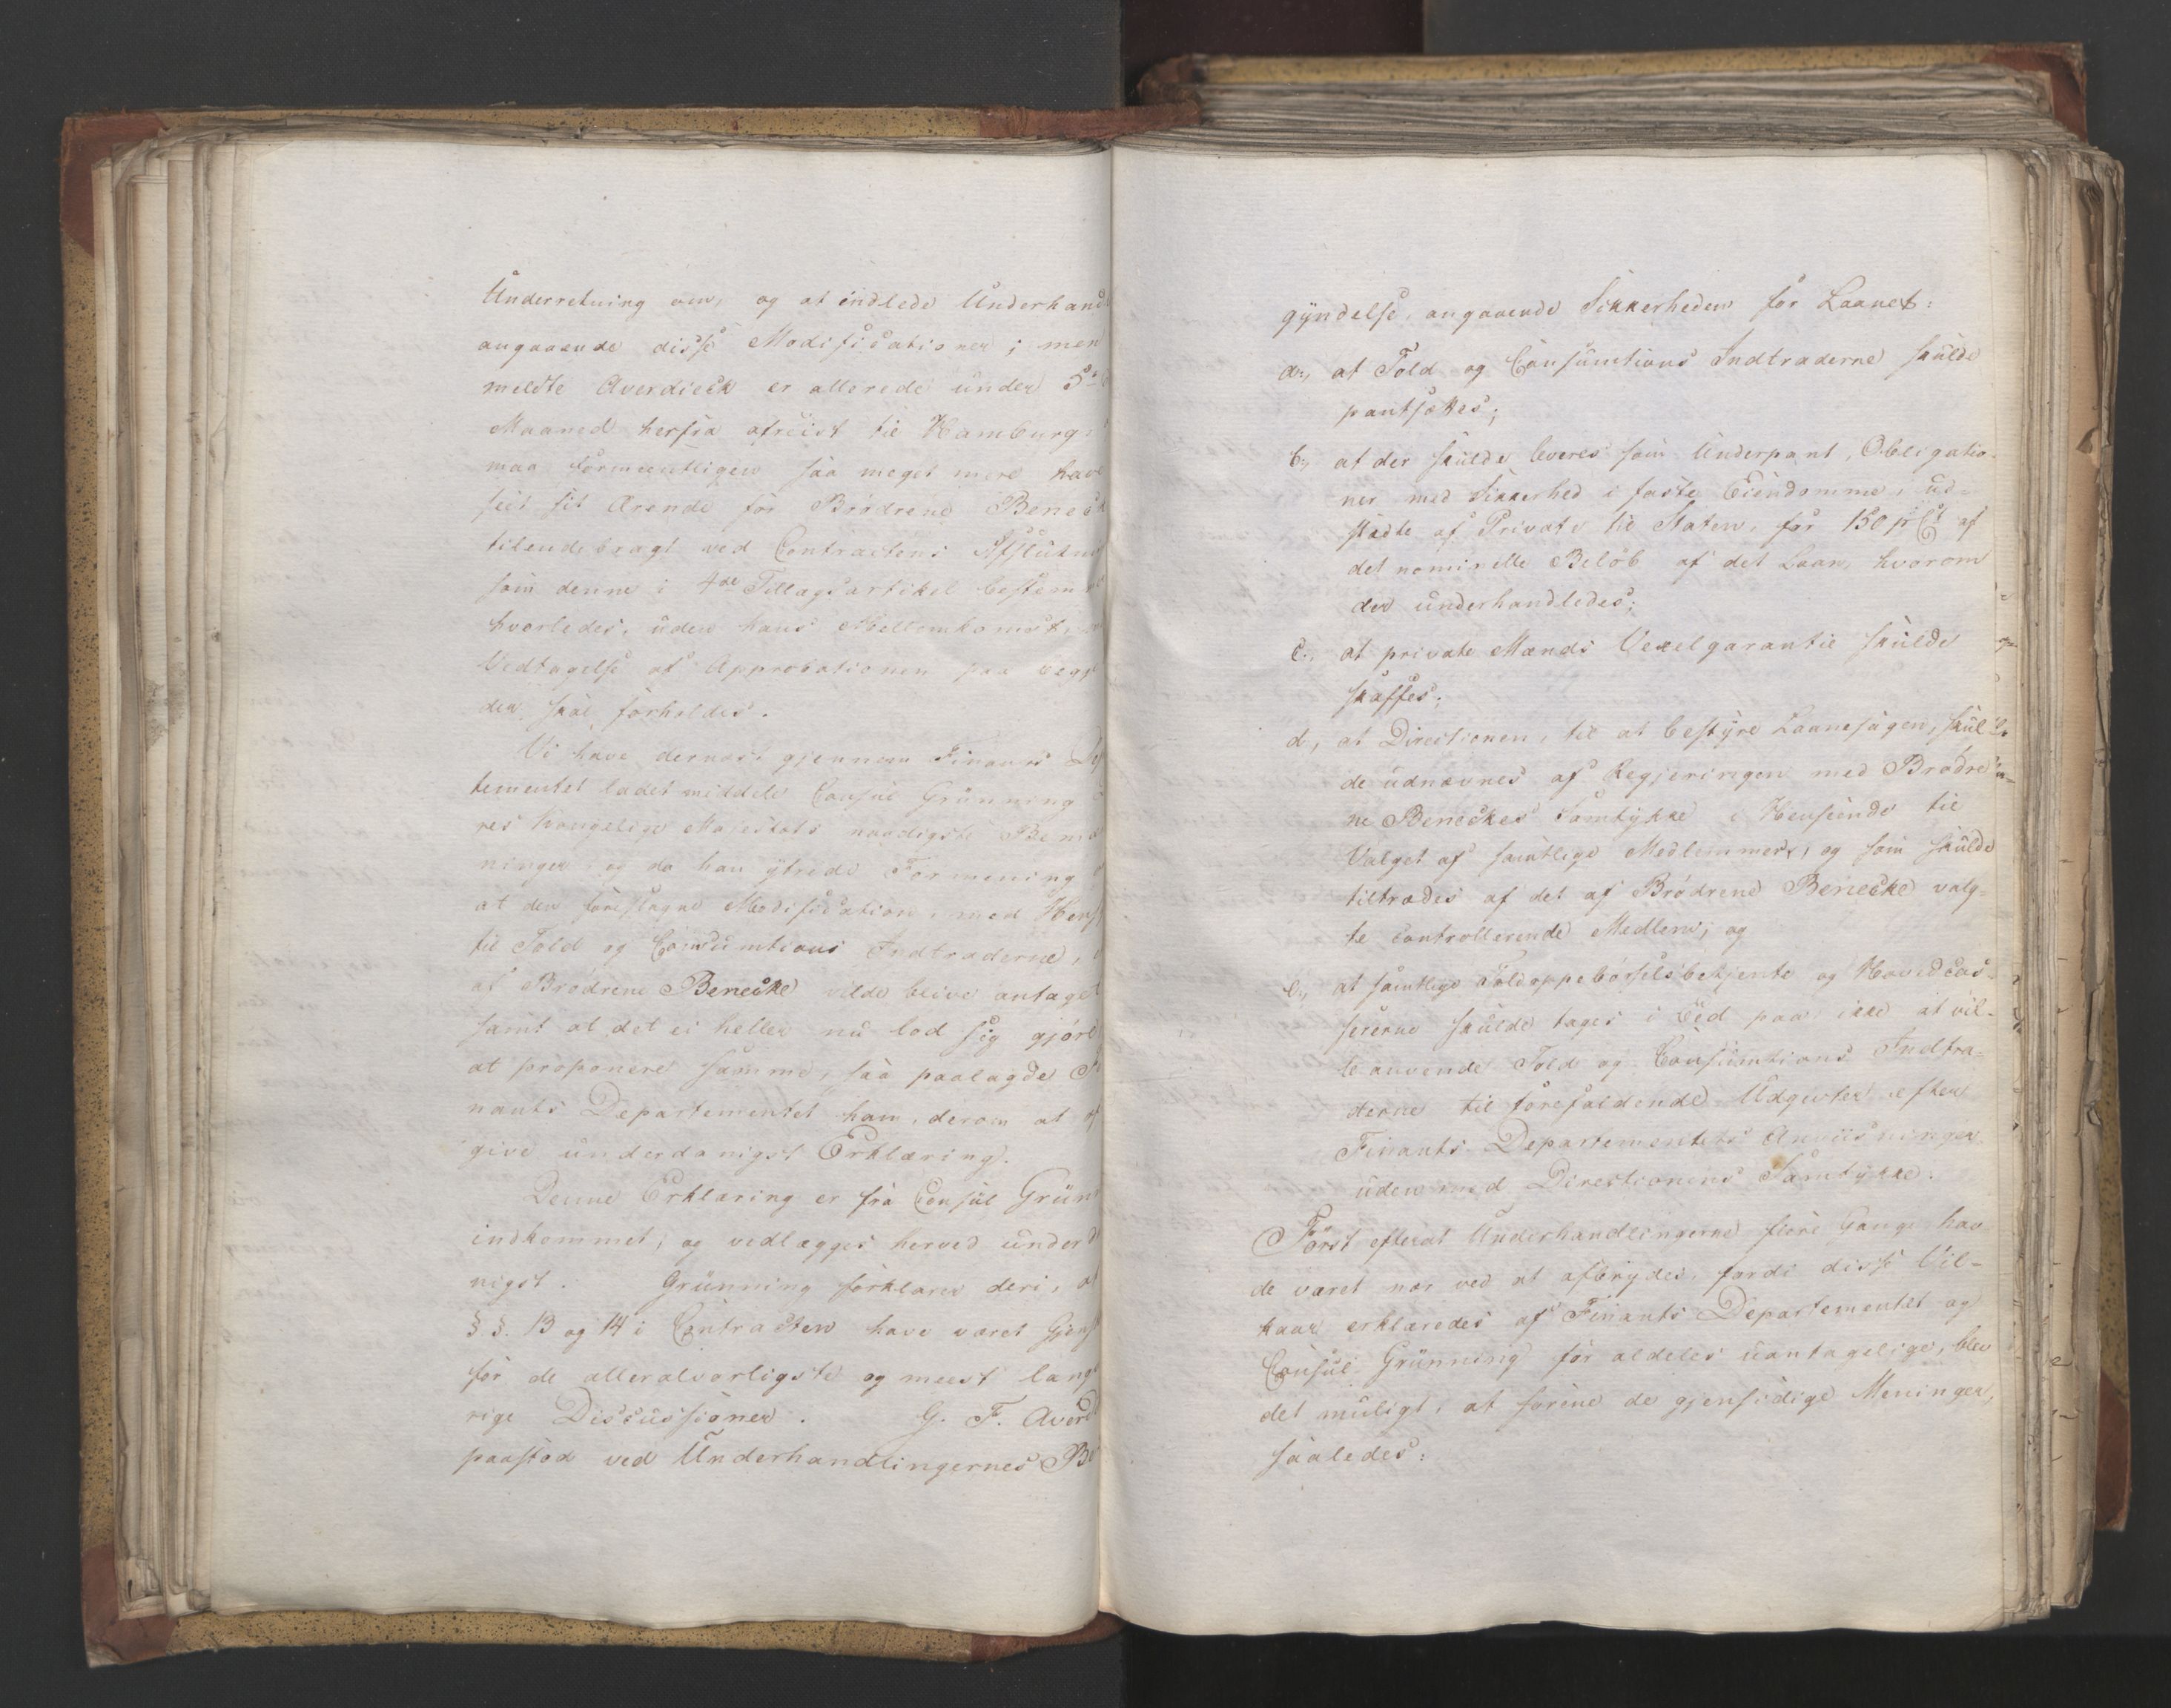 Underretning om, og at indlede Underhand
angaaende disse Modificationer; men
meldte Averdieck er allerede under 5te
Maaned herfra afreist til Hamburg,
maa formeentligen saa meget mere have
seet sit Ærende for Brødrene Beneck
tilendebragt ved Contractens Afslutn
som denne i 4de Tillægsartikel bestem
hvorledes, uden hans Mellemkomst,
Vedtagelse af Approbationen paa begge
der skal forholdes.
Vi have dernæst gjennem Finants Dep
tementet ladet meddele Consul Grünning
res Kongelige Majestæts naadigste Bemæ
ninger, og da han ytrede Formening
at den foreslagne Modification, med Hens
til Told og Consumtions Indtraderne,
af Brødrene Benecke vilde blive antaget
samt at det ei heller nu lod sig gjöre
at proponere samme, saa paalagde Fi
nants Departementet ham, derom at af
give underdanigst Erklæring.
Denne Erklæring er fra Consul Grünn
indkommet, og vedlægges herved underd
nigst. Grünning forklarer deri, at
§§. 13 og 14 i Contracten have været Gjens
for de alleralvorligste og meest lang
rige Discussioner. G. F. Averd
paastod ved Underhandlingernes Be
gyndelse, angaaende Sikkerheden for Laanet:
a., at Told og Consumtions Indtraderne skulde
pantsættes;
b., at der skulde leveres som Underpant, Obligatio-
ner med Sikkerhed i faste Eiendomme, ud-
stædte af Private til Staten, for 150 prCt. af
det nominelle Beløb af det Laan, hvorom
der underhandledes;
c., at private Mænds Vexelgarantie skulde
skaffes;
d., at Directionen, til at bestyre Laanesagen, skul-
de udnævnes af Regjeringen med Brødre-
ne Beneckes Samtykke i Henseende til
Valget af samtlige Medlemmer, og som skulde
tiltrædes af det af Brødrene Benecke valg-
te controllerende Medlem; og
e., at samtlige Toldoppebørselsbetjente og Hovedcas-
sererne skulde tages i Eed paa, ikke at vil-
le anvende Told og Consumtions Indtra-
derne til forefaldende Udgivter efter
Finants-Departementets Anviisninger
uden med Directionens Samtykke.
Først efterat Underhandlingerne flere Gange hav-
de været nær ved at afbrydes, fordi disse Vil-
kaar erklæredes af Finants-Departementet og
Consul Grünning for aldeles uantagelige, blev
det muligt, at forene de gjensidige Meninger,
saaledes: